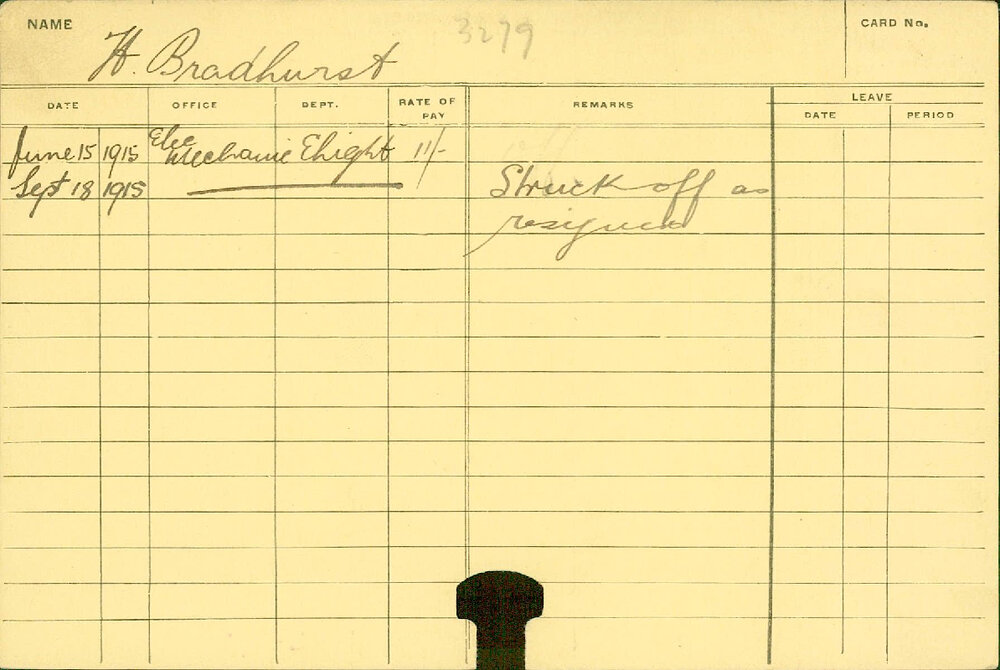 NAME
H. Bradhurst
3279
CARD No.
DATE OFFICE DEPT. RATE OF PAY REMARKS LEAVE
DATE PERIOD
June 15 1915 Elec Mechanic Elight 11/-
Sept 18 1915 Struck off as
resigned